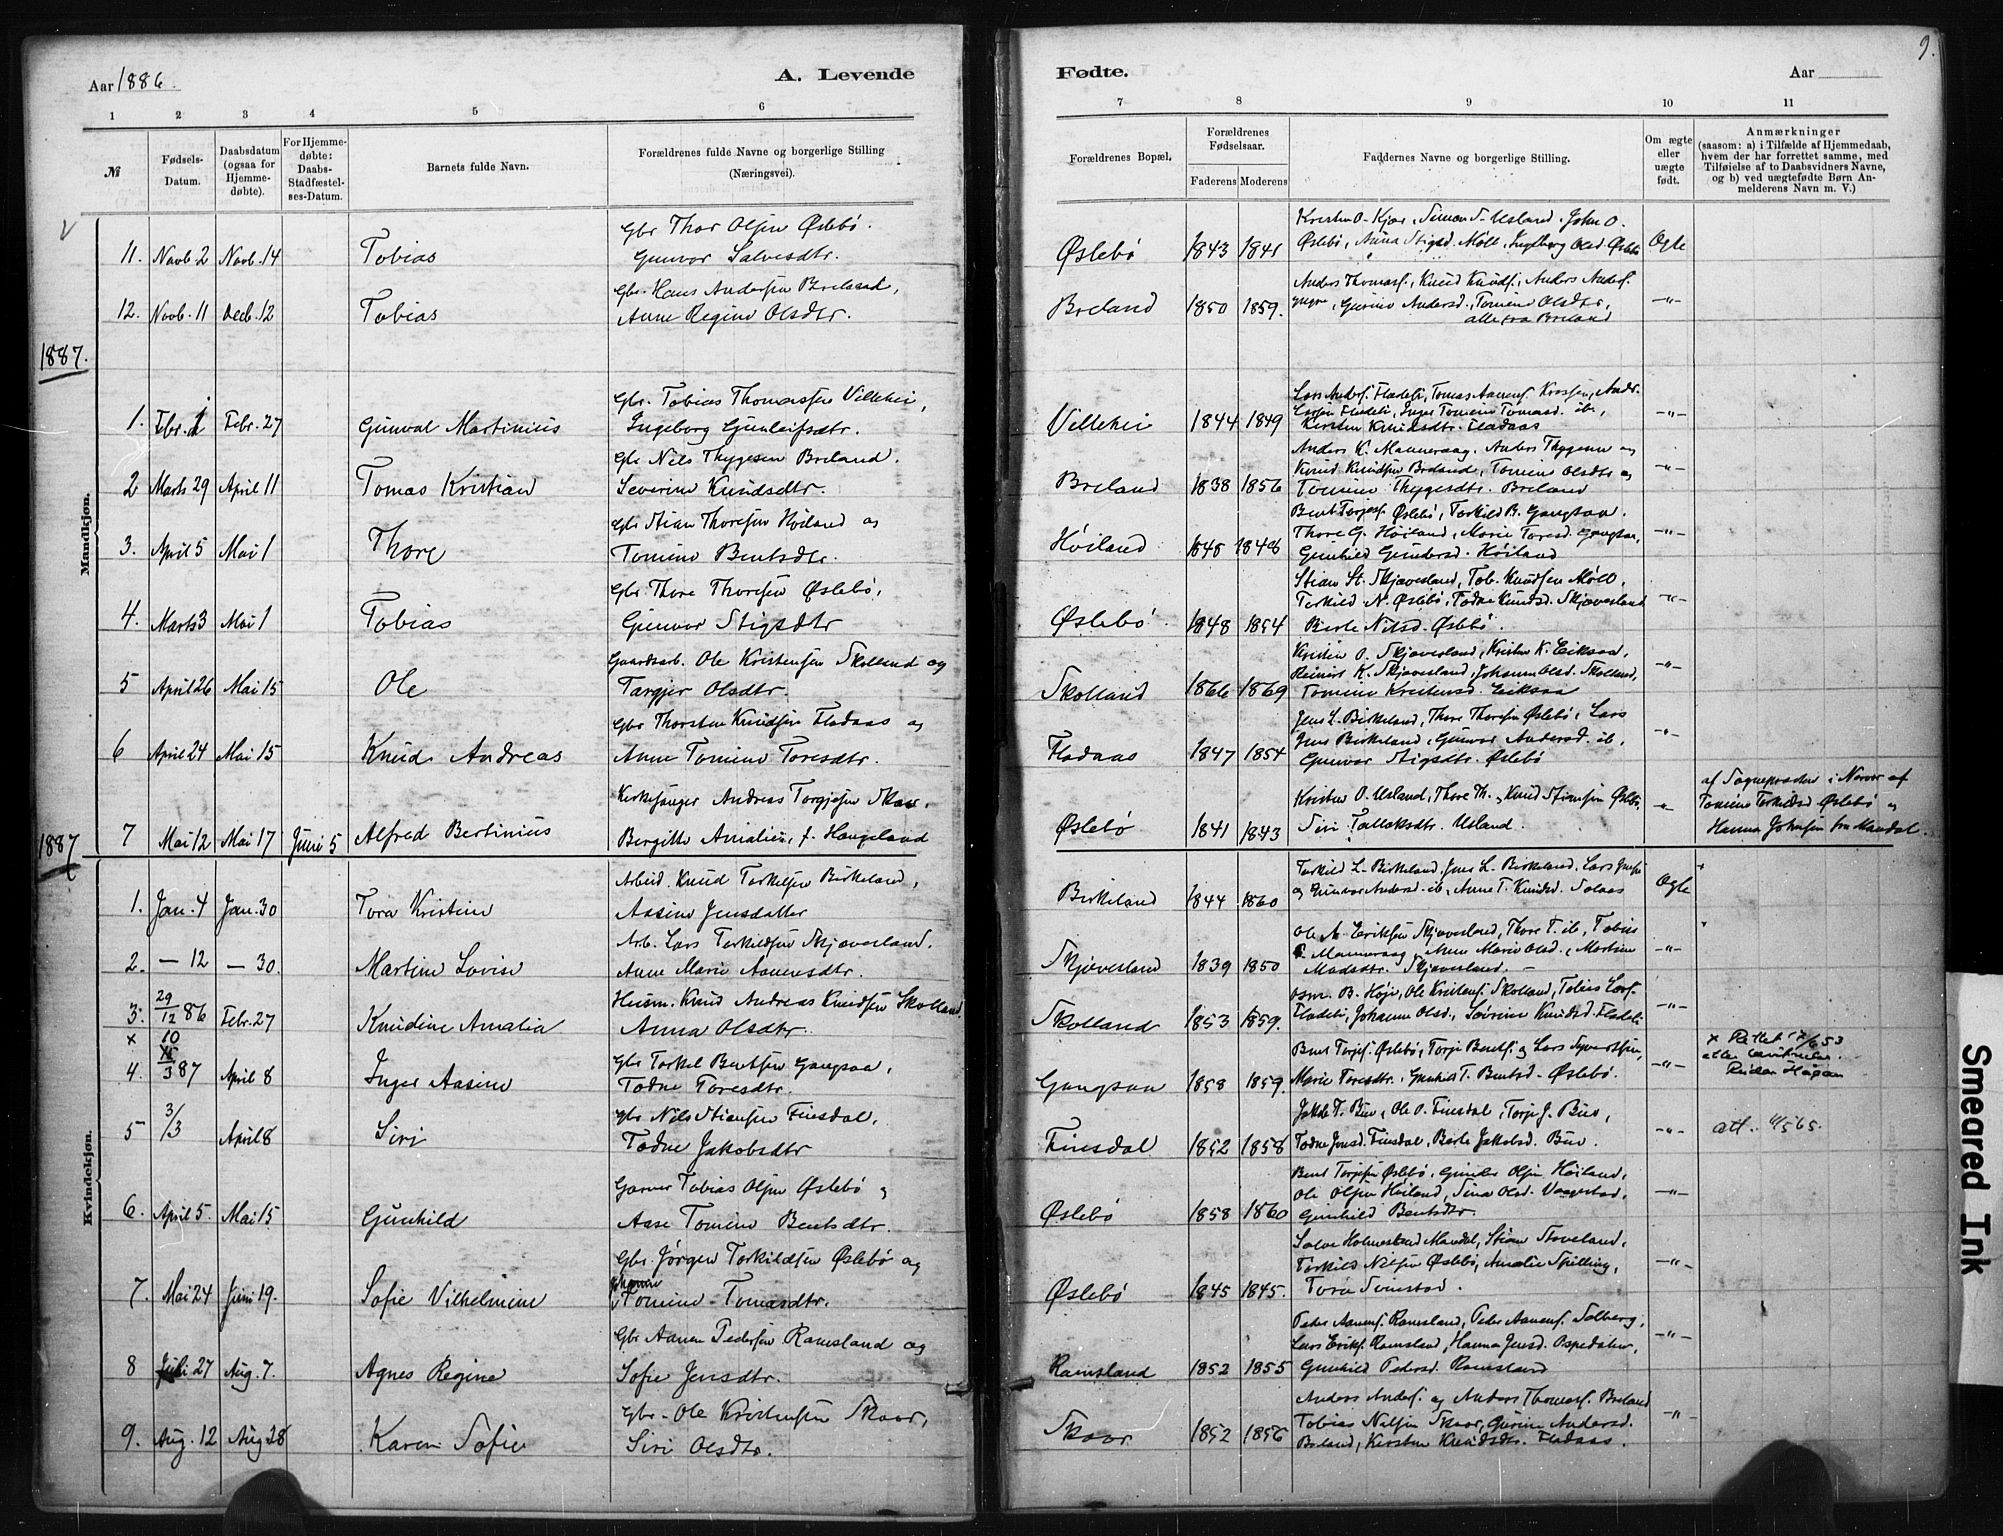 Aar 1886.
A. Levende
Fødte.
Aar
9.
1 2 3 4 5 6 7 8 9 10 11
№
Fødsels-Datum.
Daabsdatum (ogsaa for Hjemme-døbte).
For Hjemme-døbte: Daabs-Stadfæstel-ses-Datum.
Barnets fulde Navn.
Forældrenes fulde Navne og borgerlige Stilling (Næringsvei).
Forældrenes Bopæl.
Forældrenes Fødselsaar.
Faderens Moderens
Faddernes Navne og borgerlige Stilling.
Om ægte eller uægte født.
Anmærkninger
(saasom: a) i Tilfælde af Hjemmedaab, hvem der har forrettet samme, med Tilføielse af to Daabsvidners Navne, og b) ved uægtefødte Børn An-melderens Navn m. V.)
Mandkjøn.
Gbr Thor Olsen Øslebö.
Kristen O. Kjær, Simon S. Usland, John O.
11. Novb. 2 Novb. 14 Tobias Gunvor Salvesdtr. Øslebö 1843 1841 Øslebö, Anna Stigsd. Möll, Ingeborg Olsd. Øslebö Ægte
Gbr. Hans Andersen Breland,
Anders Thomasf., Knud Knudf., Anders Andersf.
12. Novb. 11 Decb. 12 Tobias Anne Regine Olsdtr. Breland 1850 1859. yngre, Gurine Andersd., Tomine Olsdtr, —"—
alle fra Breland
1887.
Gbr. Tobias Thomassen Villehei,
1. Febr. 1 Febr. 27 Gunval Martinius Ingeborg Gunleifsdtr. Villehei 1844 1849 —"—
Kirsten Knudsdtr. Fladaas
Gbr Nils Thygesen Breland.
Anders K. Manneraag, Anders Thygesen og
2 Marts 29 April 11 Tomas Kristian Severine Knudsdtr. Breland 1838 1856 Knud Knudsen Breland, Tomine Olsdtr og —"—
Tomine Thygesdtr. Breland
Gbr Stian Thoresen Höiland og
Bent Torjesf. Øslebö, Torkild B. Gangsaa.
3. April 5 Mai 1 Thore Tomine Bentsdtr. Höiland 1848 Thore G. Höiland, Marie Toresd. Gangsaa, —"—
Gunhild Gundersd. Höiland
Gbr Thore Thoresen Øslebö,
Stian St. Skjævesland, Tob. Knudsen Möll,
4. Marts 3 Mai 1 Tobias Gunvor Stigsdtr Øslebö 1848 1854 Terkild N. Øslebö, Todne Knudsd. Skjævesland —"—
Berte Nilsd. Øslebö.
Gaardsarb. Ole Kristensen Skolland og
Kristen O. Skjævesland, Kristen K. Eiksaa,
5 April 26 Mai 15 Ole Targjer Olsdtr. Skolland 1866 1869 Reinert K. Skjævesland, Johanne Olsd. Skolland, —"—
Tomine Kristensd. Eiksaa
Gbr Thorsten Knudsen Fladaas og
Jens L. Birkeland, Thore Thoresen Øslebö, Lars
6 April 24 Mai 15 Knud Andreas Anne Tomine Toresdtr. Fladaas 1847 1854 Jens Birkeland, Gunvor Andersd. ib, —"—
Gunvor Stigsdtr. Øslebö
Kirkesanger Andreas Torgjesen Skaar,
Kristen O. Usland, Thore Th. og Knud Stiansen Øslebö
af Sognepræsten i Nærvær af
Tomine Terkildsd Øslebö og
7 Mai 12 Mai 17 Juni 5 Alfred Bertinius Bergitte Amalie, f. Haugeland Øslebö 1841 1843 Siri Tallaksdtr. Usland. Hanna Johnsen fra Mandal.
1887
Kvindekjøn.
Arbeid. Knud Torkelsen Birkeland,
Torkild L. Birkeland, Jens L. Birkeland, Lars Jensen
1. Jan. 4 Jan. 30 Tora Kristine Aasine Jensdatter Birkeland 1844 1860 og Gunvor Andersd. ib, Anne T. Knudsd. Ægte
Arb. Lars Torkildsen Skjævesland.
Ole A. Eriksen Skjævesland, Thore T. ib, Tobias
2. — 12 — 30. Martine Lovise Anne Marie Aanensdtr. Skjævesland 1839 1850 Manneraag, Anne Marie Olsd., Martine —"—
Madsdtr. Skjævesland. —
Husm. Knud Andreas Knudsen Skolland.
Osm. B. Höje, Ole Kristens. Skolland, Tobias Larsf.
3. 29/12 86 Febr. 27 Knudine Amalia Anna Olsdtr. Skolland 1853 1859. Johanne Olsd., —"—
x 10
Gbr Torkel Bentsen Gangsaa,
Bent Torjesf. Øslebö, Torje Bentsf. og Lars Syvertsen,
x Rettet 17/6 53
etter
Reidar
4. /3 87 April 8 Inger Aasine Todne Toresdtr. Gangsaa 1858 1859. Marie Toresdtr., Gunhild T. Bentsd. Øslebö. —"—
Gbr Nils Stiansen Finsdal,
Jakob T. Bue, Ole O. Finsdal, Torje J. Bue,
5 3/3 April 8 Siri Todne Jakobsdtr Finsdal 1852 1858 Todne Jensd. Finsdal, Berte Jakobsd. Bue. —"— att. 4/5 65.
Garver Tobias Olsen Øslebö og
Bent Torjesen Øslebö, Gunder Olsen Höiland,
6. April 5. Mai 15 Gunhild Aase Tomine Bentsdtr. Øslebö 1858 1860 Ole Olsen Höiland, Sina Olsd. Vaagestad, —"—
Gunhild Bentsdtr.
Gbr Jörgen Torkildsen Øslebö og
Salve Holmesland Mandal, Stian Stoveland,
7. Mai 24 Juni 19. Sofie Vilhelmine Tomine Tomasdtr. Øslebö 1845 1845. Torkild Nilsen Øslebö, Amalie Spilling, —"—
Tora
Gbr Aanen Pedersen Ramsland og
Peder Aanensf. Ramsland, Peder Aanensf. Solberg,
8 Juli 27 Aug. 7. Agnes Regine Sofie Jensdtr. Ramsland 1852 1855 Lars Eriksf. Ramsland, Hanna Jensd. Ospedalen, —"—
Gunhild Pedersd. Ramsland
Gbr. Ole Kristensen Skaar,
Anders Andersf. og Anders Thomasf. Breland
9. Aug. 12 Aug 28 Karen Sofie Siri Olsdtr. Skaar 1852 1856 Tobias Nilsen Skaar, Gurine Andersd. —"—
Breland, Kirsten Knudsdtr. Fladaas.
Smeared Ink